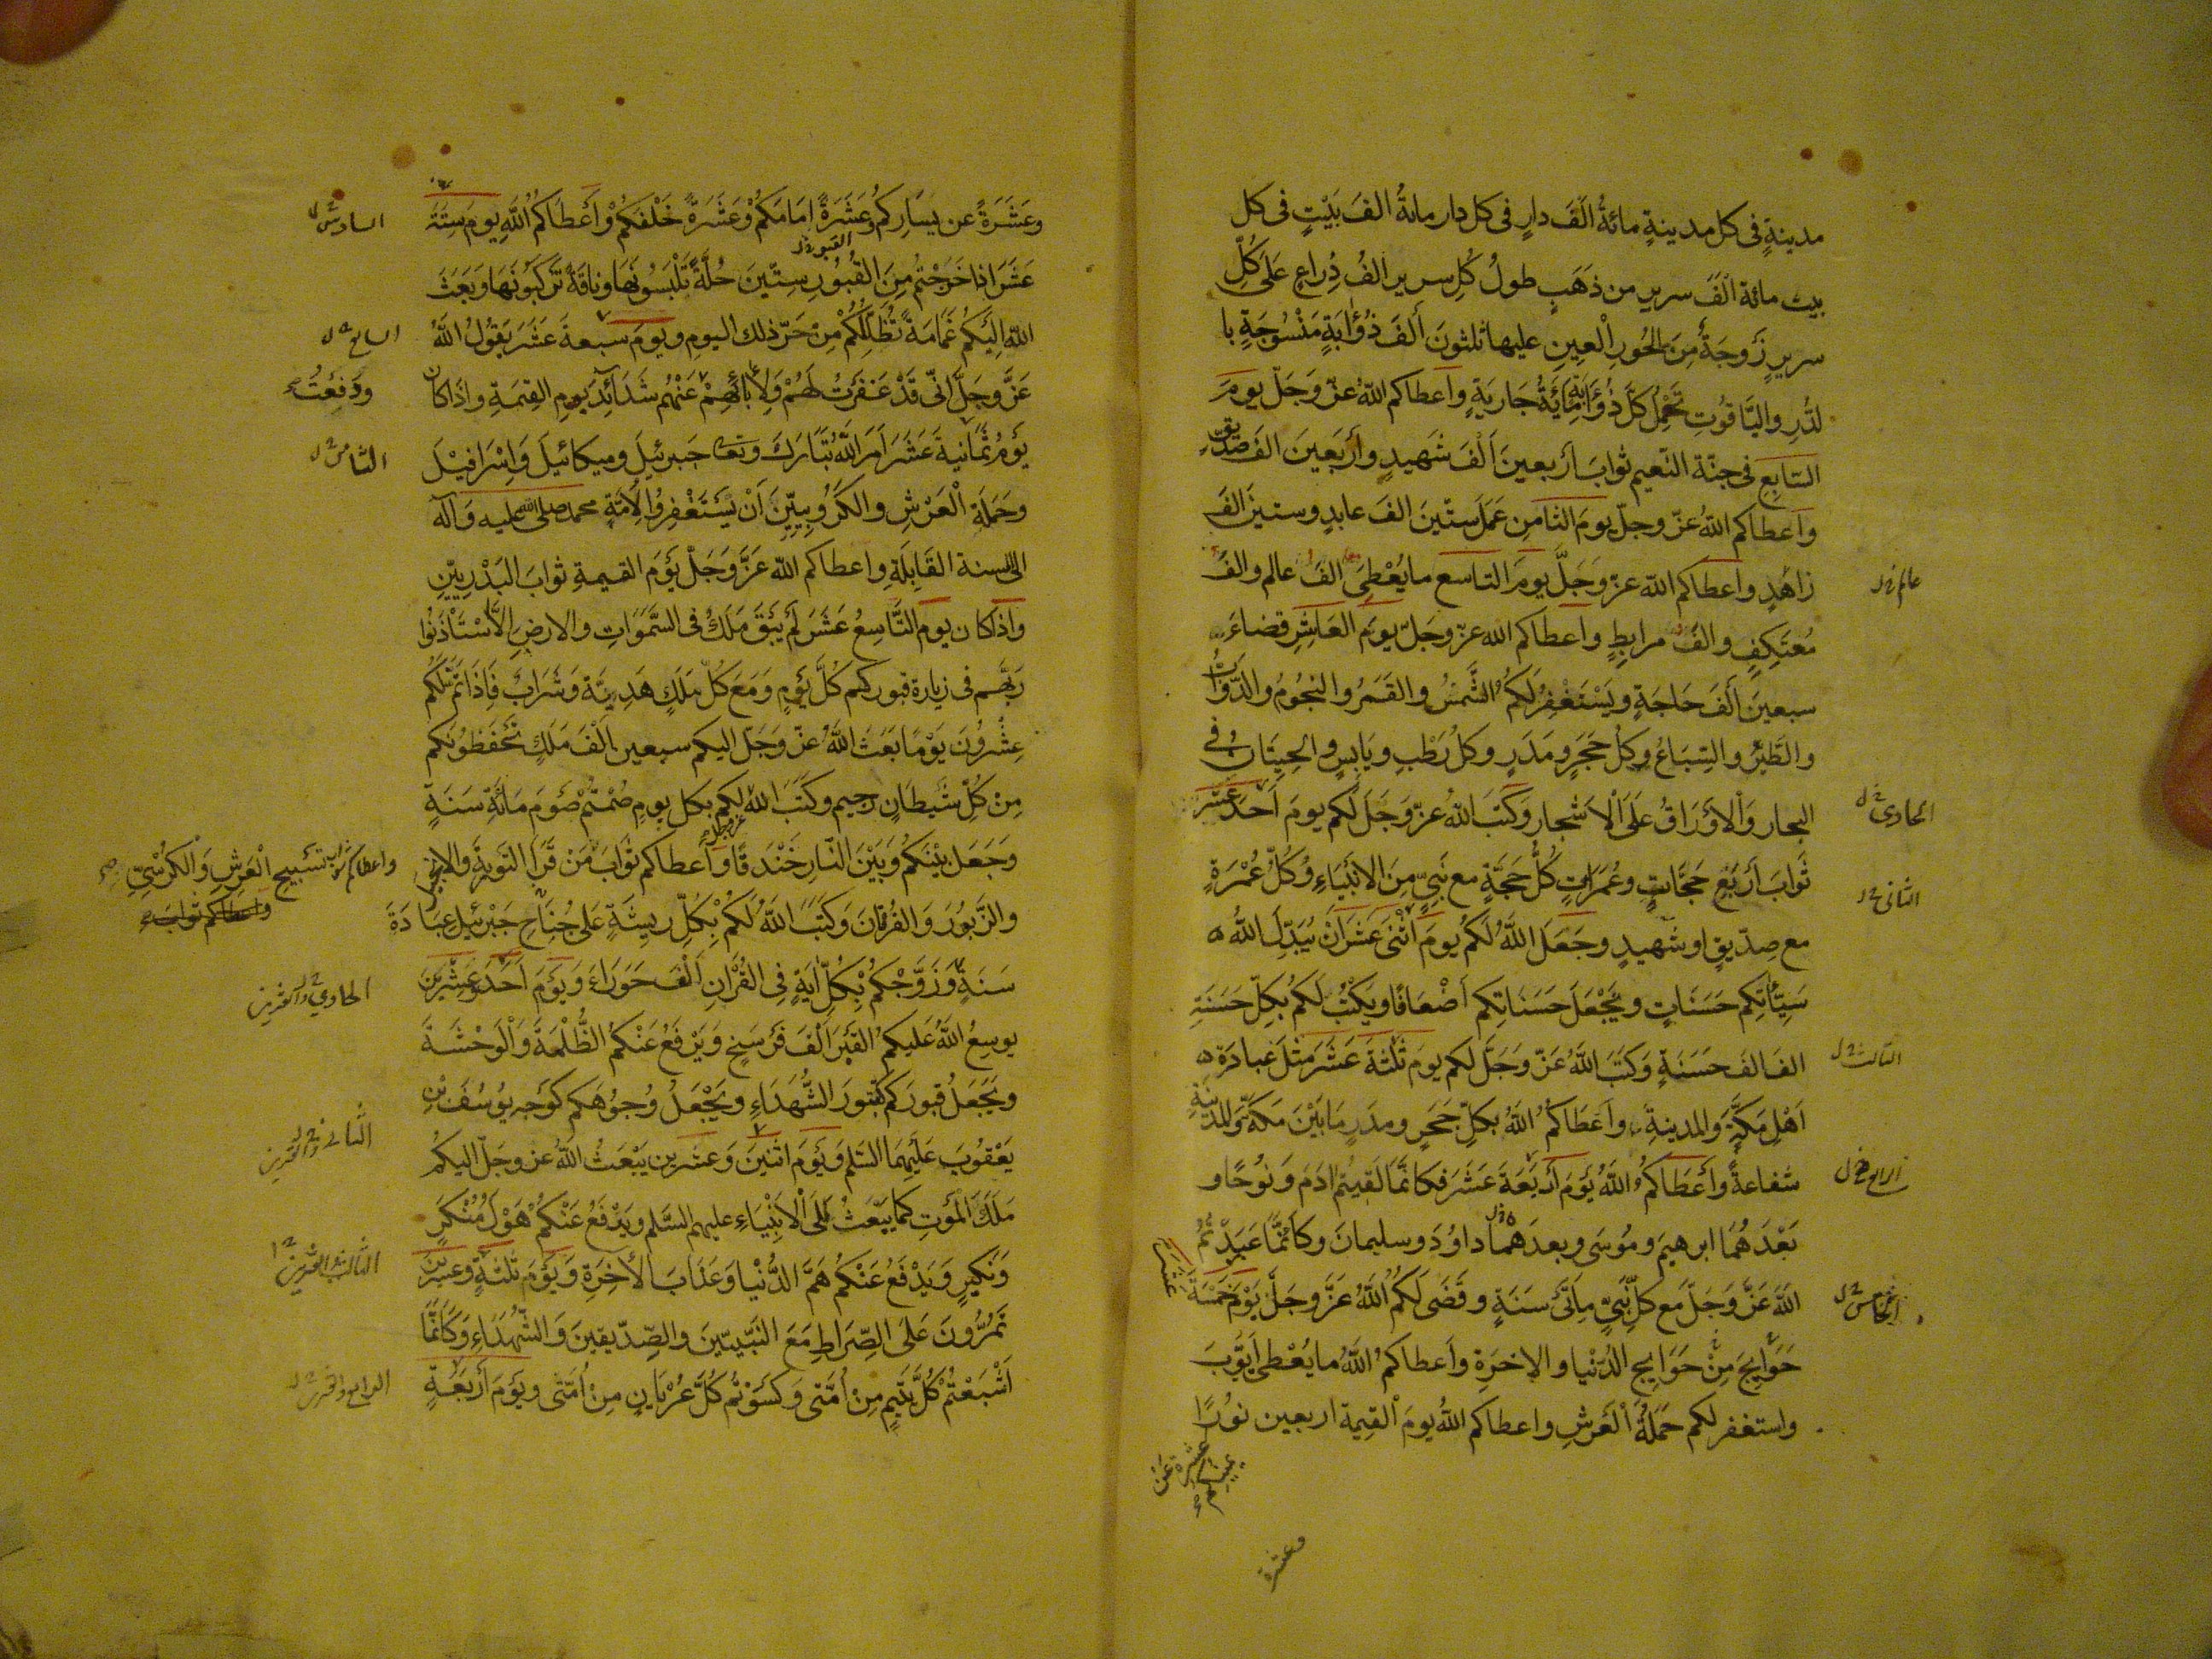 مدينةٍ فى كل مدينةٍ مائةُ الَفَ دارٍ فى كل دار مايةُ الفَ بَيْتٍ فى كل
بيت مائة الْفَ سريرٍ من ذهَبٍ طولُ كُلِ سريرٍ الفُ ذِراعٍ عَلىَ كُلِّ
سريرٍ زَوجَةٌ مِنَ الحُورِ الْعِينِ عليها ثلثونَ أَلفَ ذُؤَابَةٍ مَنْسُوجَةٍ با
لدُّرِ واليَّاقوُتِ تَحْمِلُ كلَّ ذُؤَابَةٍ مِايَةُ جَارِيَةٍ واَعطاكم اللّهُ عزّ وَجَلّ يومَ
السَّابِعِ فى جنّة النّعيم ثوابَ أربعينَ اَلْفَ شَهيدٍ وأَربَعينَ الفَ صدِّيقٍ
واَعطاكم اللهُ عزّ وجلّ يومَ الثامنِ عَمَلَ ستّينَ الفَ عابدٍ وستينَ الفَ
زاهُدٍ واعطاكم اللّه عزّ وَجَلَّ يومَ التاسع ما يُعْطِىَ الفَ عالم والفَ
عالم ل
مُعتَكِفٍ والفَ مرابِطٍ واَعطاكم الله عزّ وجَلّ يومَ العَاشِرِ قضاءَ
سبعينَ أَلَفَ حَاجَةٍ ويَسْتَغْفِرُ لَكمُ الشَّمسُ والقَمَرُ والنجُومُ والدَّوَابُّ
والطَّيْرُ والسِّبَاعُ وكلُ حَجَرٍ ومَدَرٍ وكلُ رَطْبٍ ويَابِسٍ والحِيتَانُ فى
البحار وَالْاَوْرَاقُ عَلىَ الْاَشجار وَكَتَبَ اللهُ عزّ وَجَلَ لَكم يومَ اَحَدَ عَشَرَ
الحادى ل
ثَوابَ أَرْبَعِ حَجَّاتٍ وعُمَرَاتٍ كُلُّ حَجَّةٍ مع نَبِيٍّ مِنَ الانْبِيَاءِ وُكُلُّ عُمْرَةٍ
الثانى ل
مع صِدّيقٍ او شهيدٍ وجَعَلَ اللهُ لَكُم يومَ اثْنَىْ عَشَرَ اَنْ يُبَدِّلَ اللهُ
سَيِّأَتِكم حَسَنَاتٍ ويَجْعَلَ حَسَنَاتِكم اَضْعَافًا ويَكتُبُ لكم بُكلِّ حَسَنَةٍ
الفَ الفَ حَسَنَةٍ وَكتَبَ اللهُ عَزّ وَجَلَّ لكم يومَ ثَلثَةَ عَشَرَ مثْلَ عِبادَةِ
الثالث ل
اَهْلِ مَكَّةَ والمدينةِ واَعَطَاكُمُ اللهُ بكلّ حَجَرٍ ومدَرٍ مَا بَيْنَ مكةَ والمدينةِ
شفاعةً وأَعَطَاكُمُ اللهُ يوَمَ أَرْبَعَةَ عَشَرَ فكانمَّا لَقيتُم ادَمَ وَنوُحًا و
الرابع ل
بَعْدَهُمَا ابرهيمَ ومُوسَى وبعدَهُمَا داوُدَ وسليمانَ وكاَنمَّا عَبَدْتُمُ
اللهَ عَزَّ وَجَلَّ مع كلّ نَبِيٍّ مِأتَىْ سَنَةٍ وقَضَى لَكُمُ اللهُ عَزَّ وجلَّ يَوْمَ خَمْسَةَ عَشَرَ
الخامس ل
حَوَايجَ مِنْ حَوَايِجِ الدُنْيا والاخرَةِ واَعطاكمُ اللهُ ما يُعْطى أَيُّوبَ
واستغفر لكم حَمَلَةُ الْعَرشِ واعطاكم اللهُ يومَ القِيمة اربعين نوُرًا
عشرة عن
يمينكم
وعشرة
وعَشَرَةً عن يسَارِكمُ وعَشَرَةً امَامَكُم وَعَشَرةً خَلْفَكُمْ وأَعَطَاكمُ اللهُ يومَ سِتَةَ
السادس ل
عَشَرَ اذا خَرَجْتُم مِنَ القُبُورِ سِتِّينَ حُلَّةً تَلْبَسُونَهَا وناقَةً تَرْكَبُونَهَا وبَعَثَ
القبور ل
اللهُ اِلَيكُم غَمَامَةً تُظَلِّلُكُمْ مِنْ حَرّ ذلك اليومِ ويومَ سبعةَ عَشَرَ يَقوُلُ اللهُ
السابع ل
عَزَّ وجَلَّ انّى قَدْ غَفَرْتُ لَهُمْ ولِاٰبائِهِمْ عَنْهُم شَدَائِدَ يومِ القِيمَةِ واذَا كانَ
ودَفَعْتُ
يَوْمُ ثَمَانيةَ عَشَرَ اَمَرَ اللهُ تَبَارَكَ وتعا جَبرئيلَ وميكائيلَ وَاِسْرَافيْلَ
الثامن ل
وحَمَلَة الْعَرْشِ والكَرُوبِيّينَ اَنْ يَسْتَغْفِرُوا لِاُمَّةِ محمد صلى الله عليه وَآله
الى السنة القَابِلَةِ واعطاكم اللّه عَزَّ وَجَلْ يوَمَ القيمةِ ثوابَ البَدْرِيّينِ
واذَا كان يوم التَّاسِعُ عَشَرَ لَمْ يَبْقَ مَلَكٌ فى السَّمَوَاتِ والارضِ الاَّ اسْتَاذَنوُا
رَبَّهُم فى زيارة قبوركم كلَّ يَوْمٍ وَمَعَ كُلّ مَلَكٍ هَدِيَّة وَشَرَابٌ فَاِذَا تَمَّ لَكُم
عِشْرُونَ يَوْمًا بَعَثَ اللهُ عزّ وجَلّ اليكم سبعين الْفَ مَلَكٍ يَحْفَظوُنكم
مِنْ كلّ شَيطَانٍ رجيم وكَتَبَ اللهُ لكم بكل يومٍ صُمْتُمْ صَوْمَ مَائَةِ سَنَةٍ
وجَعَلَ بيْنَكُم وبَيْنَ النَّارِ خَنْدَقًا واَعطاكم ثَوابَ مَنْ قَرَأَ التَّوريةَ والانجيلَ
عز وجل
والزَّبوُرَ وَالفُرقانَ وَكتَبَ اللهُ لَكُمْ بْكُلّ رِيشَةٍ عَلى جُنَاحِ جَبْرئيلَ عِبَادَةَ
واعطاكم ثواب تسبيح الْعَرشِ وَالكُرْسِىّ
واعطاكم ثواب
سَنَةٍ وَزَوَّجَكُمْ بْكُلّ اٰيَةٍ فِى القُرْاٰنِ الَفَ حَوراءَ وَيَوْمَ اَحَدَ وعِشْرينَ
الحادى والعشرين
يوسِعُ اللهُ عَليكمُ القَبْرَ اَلْفَ فَرْسَخٍ وَيَرْفَعُ عَنْكُمُ الظُّلْمَةَ وَالْوَحْشَةَ
ويَجْعَلُ قبورَكم كَقبُورَ الشُّهَدَاءِ ويَجْعَلُ وُجوُهَكم كوَجهِ يوُسُفَ بْنِ
يَعْقُوبَ عَليْهِمَا السَّلم وَيَوْمَ اثنَينَ وَعشرين يَبْعَثُ اللهُ عز وجلّ اليكمُ
الثانى والعشرين
مَلَكَ المْوَتِ كما يَبْعَثُ اِلَى الْاَنْبِيَاءِ عليهم السَّلم ويَدْفَعُ عَنْكُمْ هَوْلَ مُنْكَرٍ
وَنَكيرٍ وَيَدْفَعُ عَنْكُمْ هَمَّ الدُّنْيا وَعَذابَ الأخِرَةِ وَيَوْمَ ثَلثةٍ وعشرينَ
الثالث والعشرين
تمَرُّونَ عَلىَ الصِّرَاطِ مَعَ النَّبيّينَ والصّدّيقينَ وَالشُّهَدَاءِ وَكَاَنَّمَا
اَشْبَعْتُمْ كُلَّ يَتيمٍ مِنْ اُمَّتى وكَسَوْتُم كُلَّ عُرْيَانٍ مِنْ اُمَّتى ويَوْمَ أَرْبَعَةٍ
الرابع والعشرين